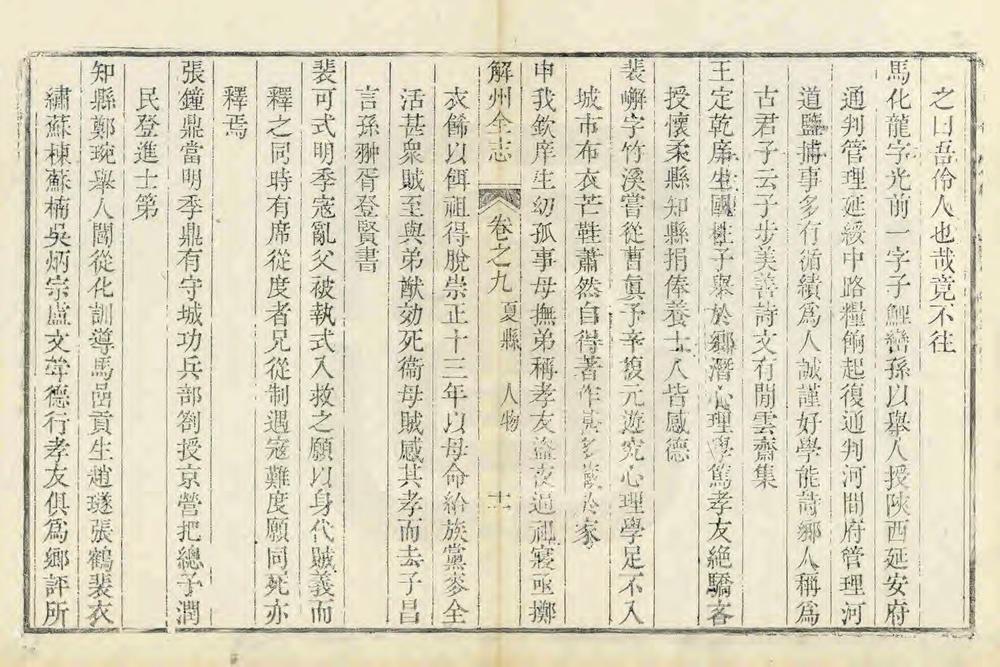 之曰吾伶人也哉竟不往
馬化龍字光前一字子鯉巒孫以舉人授陝西延安府
通判管理延綏中路糧餉起復通判河間府管理河
道鹽捕事多有循績為人誠謹好學能詩鄉人稱為
古君子云子步美善詩文有閒雲齋集
王定乾庠生國柱子舉於鄉潛心理學篤孝友絕驕吝
授懷柔縣知縣捐俸養士人皆感德
裴嶰字竹溪嘗從曹真予辛復元遊究心理學足不入
城市布衣芒鞋蕭然自得著作甚多藏於家
申我欽庠生幼孤事母撫弟稱孝友盜夜逼祖寢亟擲
解州全志 卷之九 夏縣 人物 十一
衣餙以餌祖得脫崇正十三年以母命給族黨麥全
活甚衆賊至與弟猷効死衞母賊感其孝而去子昌
言孫翀胥登賢書
裴可式明季寇亂父被執式入救之願以身代賊義而
釋之同時有席從度者兄從制遇寇難度願同死亦
釋焉
張鐘鼎當明季鼎有守城功兵部劄授京營把總子潤
民登進士第
知縣鄭琬舉人閻從化訓導馬嵒貢生趙璲張鶴裴衣
繡蘇棟蘇楠吳炳宗盧文犖德行孝友俱為鄉評所